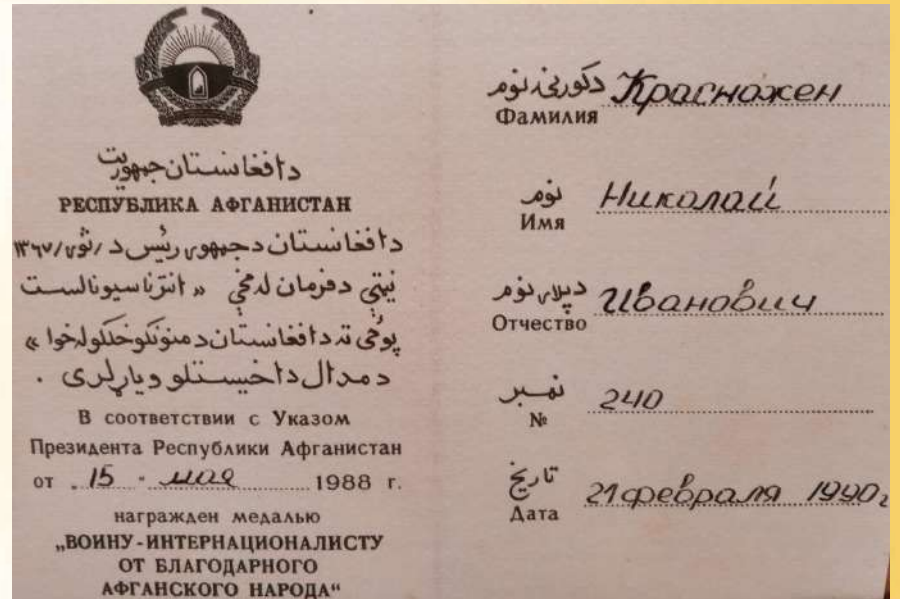 دافغانستان جمهوريت
РЕСПУБЛИКА АФГАНИСТАН
دافغانستان دجمهور رئيس د /ثور/١٣٦٧
نيټې دفرمان له مخې « انترناسيونالست
پوځي ته دافغانستان د منونکو خلکو له خوا »
د مدال د اخيستلو وياړ لري .
В соответствии с Указом
Президента Республики Афганистан
от „15 “ мая 1988 г.
награжден медалью
„ВОИНУ-ИНТЕРНАЦИОНАЛИСТУ
ОТ БЛАГОДАРНОГО
АФГАНСКОГО НАРОДА“
دکورنۍ نوم
Фамилия Красножен
نوم
Имя Николай
دپلار نوم
Отчество Иванович
نمبر
№ 240
تاريخ
Дата 21 февраля 1990г